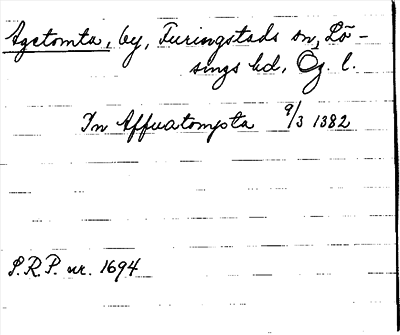 Agetomta, by, Furingstads sn, Lö-
sings hd, Ög. l.
In Affuatompta 9/3 1382
S.R.P. nr. 1694